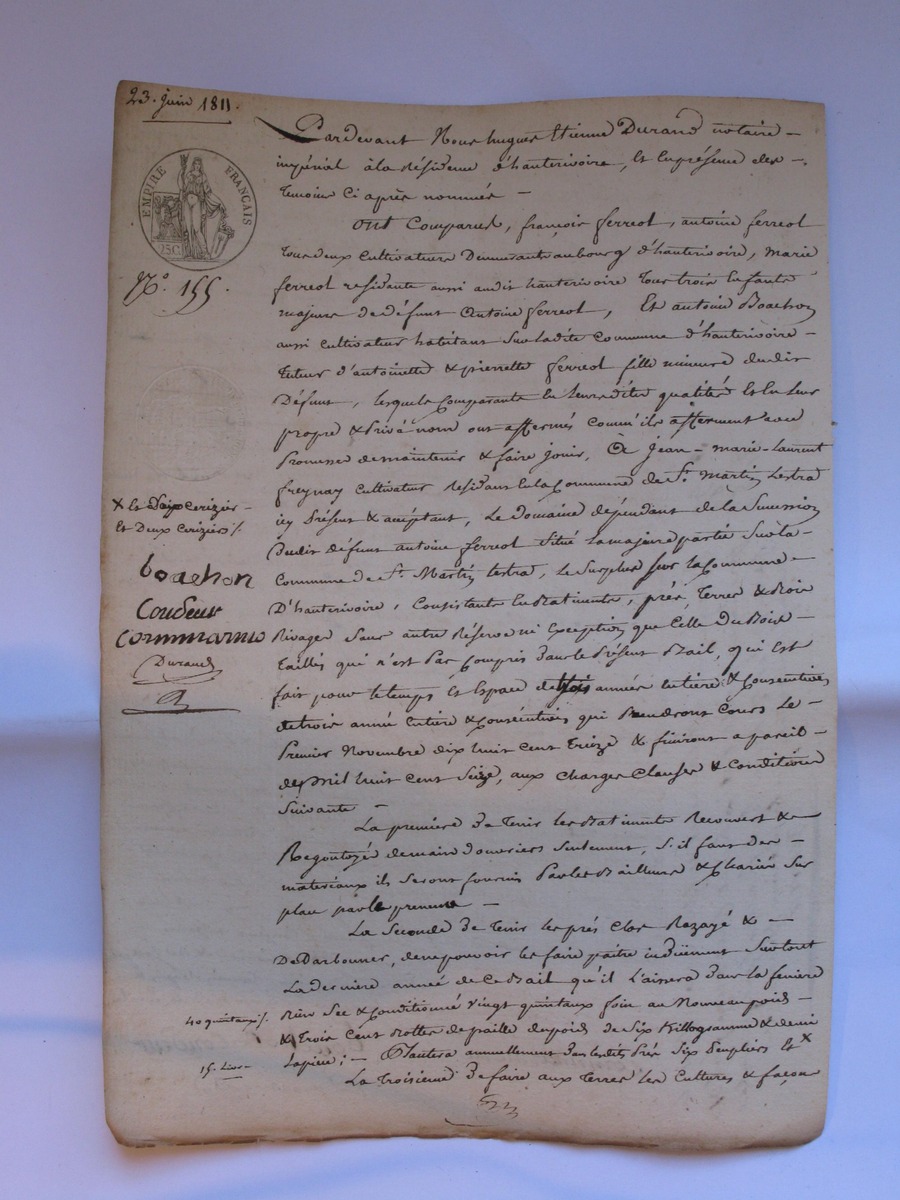 23. juin 1811.
EMPIRE FRANÇAIS
25 C.
N.o 155.
Pardevant Nous hugues Etienne Durand notaire
impérial à la résidence d'hauterivoire, et en présence des
temoins Ci après nommés
Ont Comparus, françois ferreol, antoine ferreol
tous deux Cultivateurs Demeurants au bourg d'hauterivoire, marie
ferreol residante aussi audit hauterivoire tous trois Enfants
majeurs de défunt Antoine ferreol, Et antoine Boachon
aussi cultivateur habitant Sur la dite Commune d'hauterivoire
tuteur d'antoinette & pierrette ferreol fille mineure dudit
Défunt, lesquels Comparants En leurs dites qualités Et En leur
propre & Privé nom ont affermés Comm'ils afferment avec
Promesse de maintenir & faire jouir, à Jean-marie-Laurent
freynay Cultivateur Residant En la Commune de St. Martin Lestra
icy Présent & acceptant, Le Domaine dépendant de la Succession
Dudit défunt antoine ferreol Situé la majeure partie Sur la
Commune de St. Martin Lestra, le Surplus sur la Commune
D'hauterivoire, Consistants En Batiments, prés, Terres & Bois
Rivages Sans autre Réserve ni Exception que Celle du Bois
taillis qui n'est Pas Compris dans le Présent Bail, qui Est
fait pour le temps Et Espace de trois années Entières & Consécutives
de trois année Entière & Consécutives qui Prendront Cours Le
Premier Novembre dix huit Cent Treize & finiront a pareil
de mil huit Cent Seize, aux Charges Clauses & Conditions
Suivante
La première de Tenir les Batiments Recouvert &
Regoutoyé de main d'ouvriers Seulement, S'il faut des
materiaux ils Seront fournis Par les Bailleurs & Chariés Sur
place par le preneur
La Seconde de Tenir les prés Clos Razayé &
De Darbonner, de ne pouvoir les faire paitre indûement Surtout
La dernière année de Ce Bail qu'il Laissera dans la feniere
Bien Sec & Conditionné Vingt quintaux foin au Nouveau poids
& Trois Cent Bottes de paille du poids de Six Killogramme & demi
La pièce; Plantera annuellement dans lesdits Prés Six Peupliers Et x
La Troisieme De faire aux Terres les Cultures & façon
x Et Six Cerizier
Et Deux Ceriziers /.
boachon
Coudeur
Commarmo
Durand
40 quintaux /.
15. Livre